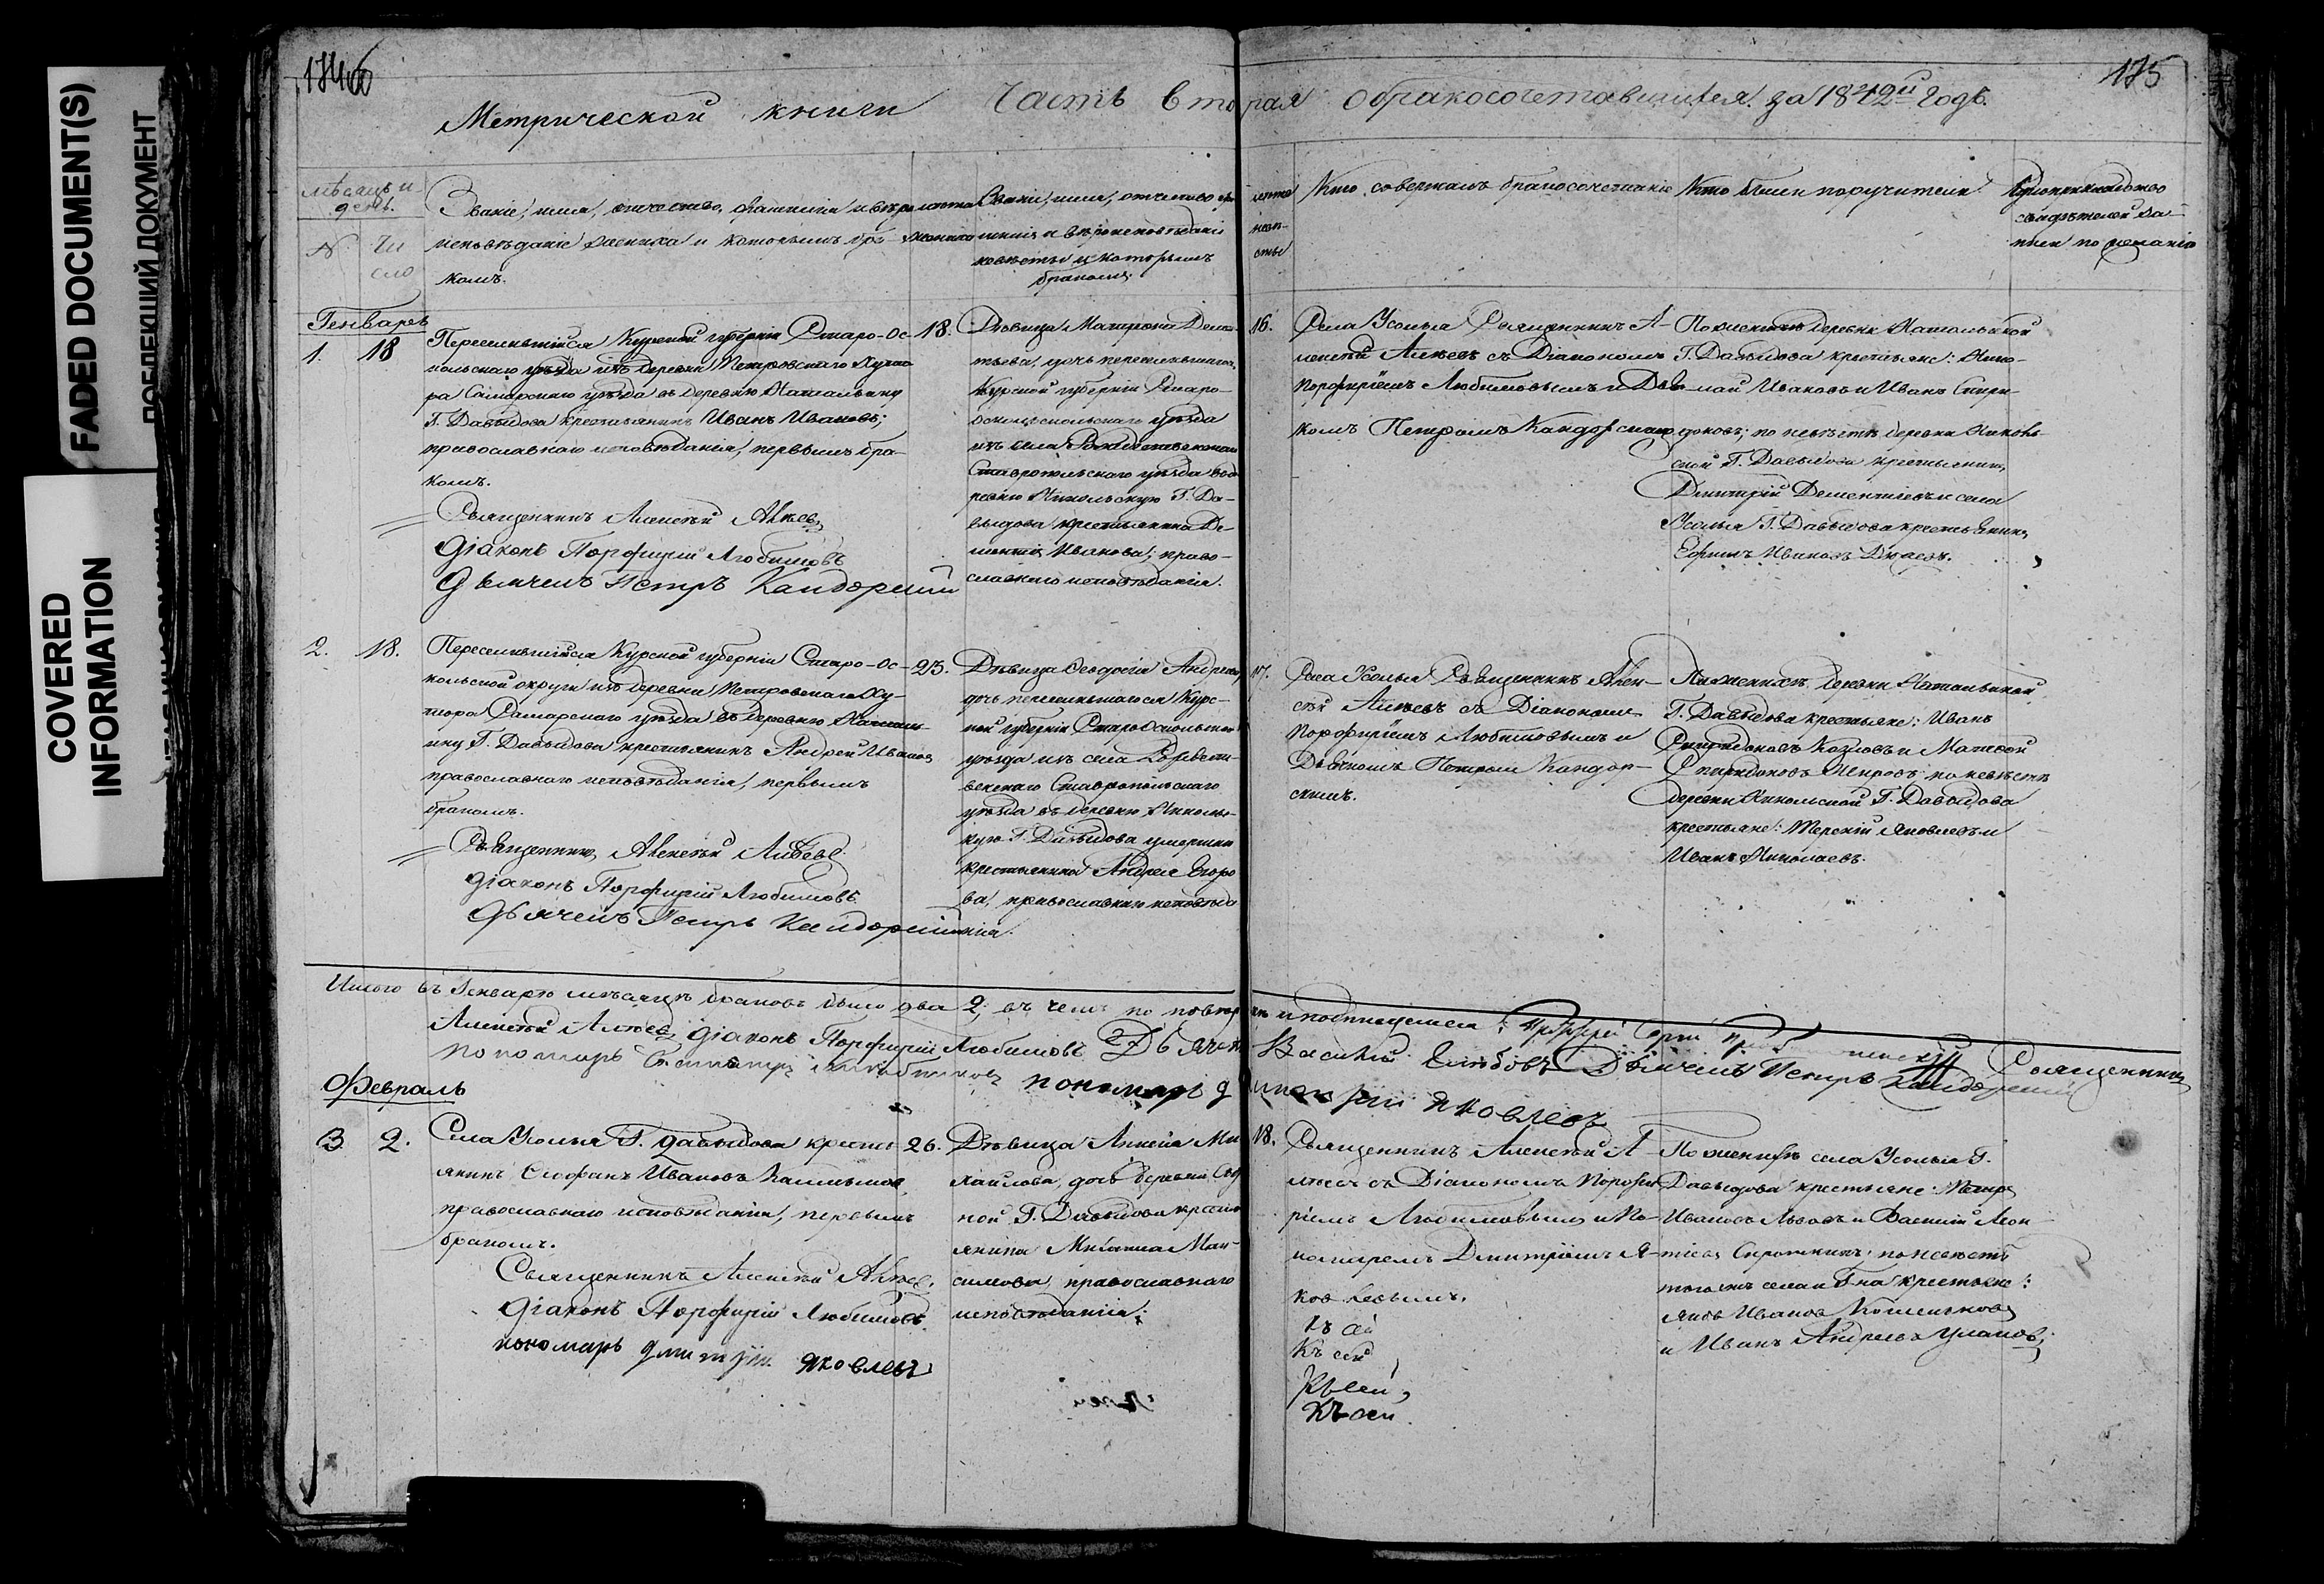 FADED DOCUMENT(S)
COVERED
INFORMATION
175
Метрической книги Часть вторая о бракосочетавшихся за 1842й годъ.
мѣсяцъ и
день.
№ Чи
сло
Званіе, имя, отчество, фамилія и вѣро
исповѣданіе жениха и которымъ бра-
комъ.
лѣта
жениха
Званіе, имя, отчество, фа
милія и вѣроисповѣданіе
невѣсты и которымъ
бракомъ.
лѣта
невѣ-
сты
Кто совершалъ бракосочетаніе
Кто были поручители
свидѣтелей за-
писи по желанію
Генварь
1. 18
Переселившійся Курской губерніи Старо-Ос-
кольскаго уѣзда изъ деревни Петровскаго Хуто
ра Самарскаго уѣзда въ деревню Натальину
Г. Давыдова крестьянинъ Иванъ Ивановъ;
православнаго исповѣданія, первымъ бра-
комъ.
Священникъ Алексѣй Алѣевъ
Діаконъ Порфирій Любимовъ
Дьячекъ Петръ Кандорскій
18.
Дѣвица Матрона Демен-
тьева, дочь переселившагося
Курской губерніи Старо-
оскольскаго уѣзда
изъ села Рождественскаго
Ставропольскаго уѣзда въ де
ревню Никольскую Г. Да-
выдова крестьянина Де-
ментія Иванова; право-
славнаго исповѣданія.
16.
Села Усолья Священникъ А-
лексѣй Алѣевъ съ Діакономъ
Порфиріемъ Любимовымъ и Дья
комъ Петромъ Кандорскимъ
По женихѣ деревни Натальиной
Г. Давыдова крестьяне: Нико-
лай Ивановъ и Иванъ Спири-
доновъ; по невѣстѣ деревни Николь-
ской Г. Давыдова крестьянинъ
Дмитрій Дементіевъ и села
Усолья Г. Давыдова крестьянинъ
Ефимъ Ивановъ
2. 18.
Переселившійся Курской губерніи Старо-Ос-
кольской округи изъ деревни Петровскаго Ху-
тора Самарскаго уѣзда въ деревню Наталь
ину Г. Давыдова крестьянинъ Андрей Ивановъ
православнаго исповѣданія, первымъ
бракомъ.
Священникъ Алексѣй Алѣевъ
Діаконъ Порфирій Любимовъ
Дьячекъ Петръ Кандорскій
25.
Дѣвица Ѳеодосія Андреева
дочь переселившагося Курс-
кой губерніи Старооскольскаго
уѣзда изъ села Рождест-
венскаго Ставропольскаго
уѣзда въ деревню Николь-
скую Г. Давыдова умершаго
крестьянина Андрея Егоро
ва, православнаго исповѣда
нія.
17.
Села Усолья Священникъ Алек-
сѣй Алѣевъ съ Діакономъ
Порфиріемъ Любимовымъ и
Дьячкомъ Петромъ Кандор-
скимъ.
По женихѣ деревни Натальиной
Г. Давыдова крестьяне: Иванъ
Спиридоновъ Козловъ и Матвей
Спиридоновъ по невѣстѣ
деревни Никольской Г. Давыдова
крестьяне: Терентій Яковлевъ и
Иванъ Николаевъ.
Итого въ Генварѣ мѣсяцѣ браковъ было два 2, въ чемъ по повѣр и подписуемся: Священникъ
Алексѣй Алѣевъ Діаконъ Порфирій Любимовъ Дьячекъ Василій Дьячекъ Петръ Кандорскій
Пономарь пономарь Дмитрій Яковлевъ
Февраль
3. 2.
Села Усолья Г. Давыдова крестья
янинъ Стефанъ Ивановъ
православнаго исповѣданія, первымъ
бракомъ.
Священникъ Алексѣй Алѣевъ
Діаконъ Порфирій Любимовъ
пономарь Дмитрій Яковлевъ
26.
Дѣвица Ми
хайлова, дочь деревни
ной Г. Давыдова кресть
янина Михаила Мак-
симова, православнаго
исповѣданія.
18.
Священникъ Алексѣй А-
лѣевъ съ Діакономъ Порфи
ріемъ Любимовымъ и По-
номаремъ Дмитріемъ Я-
ковлевымъ.
Къ сей
Къ сей
Къ сей
Къ сей
По женихѣ села Усолья Г.
Давыдова крестьяне: Петръ
Ивановъ Львовъ и Василій Леон
тіевъ по невѣстѣ
тогожъ села и Г-на крестьяне:
Яковъ Ивановъ
и Иванъ Андреевъ Улановъ